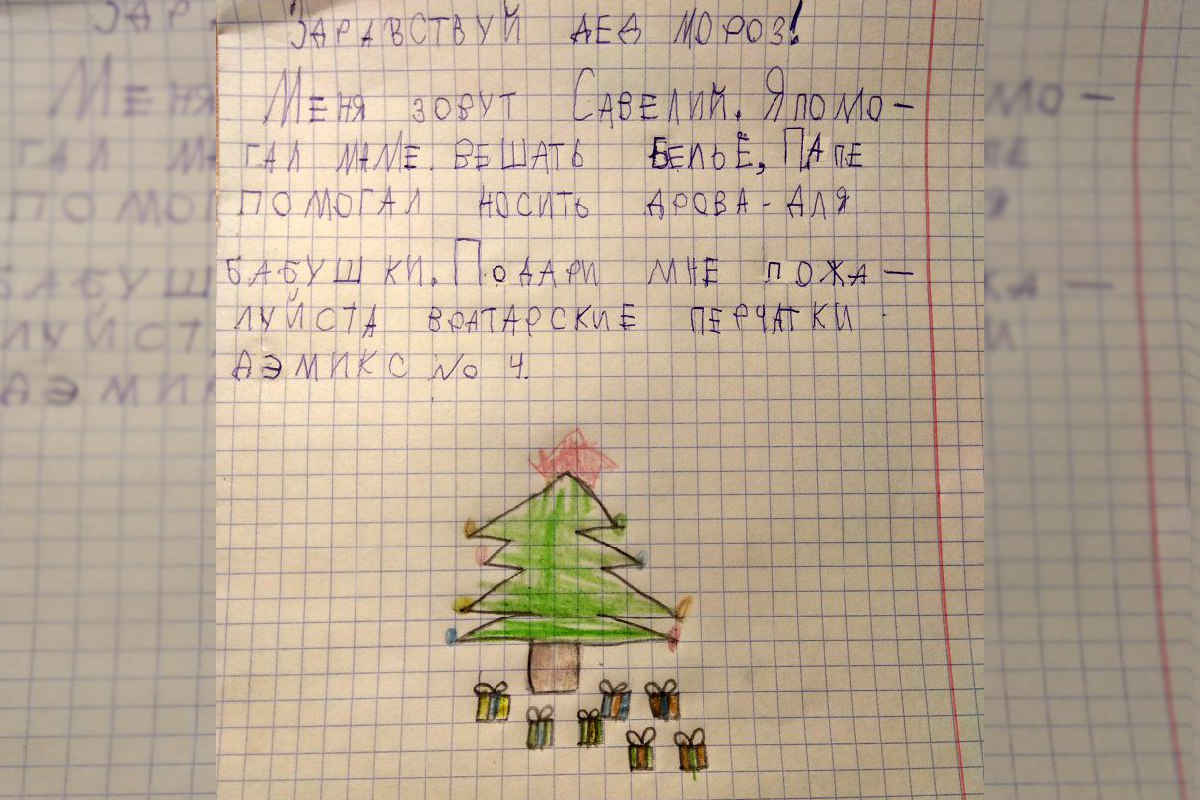 ЗДРАВСТВУЙ ДЕД МОРОЗ!
Меня зовут Савелий. Я помо-
гал маме вешать бельё, Папе
помогал носить дрова-для
бабушки. Подари мне пожа-
луйста вратарские перчатки
аэмикс № 4.